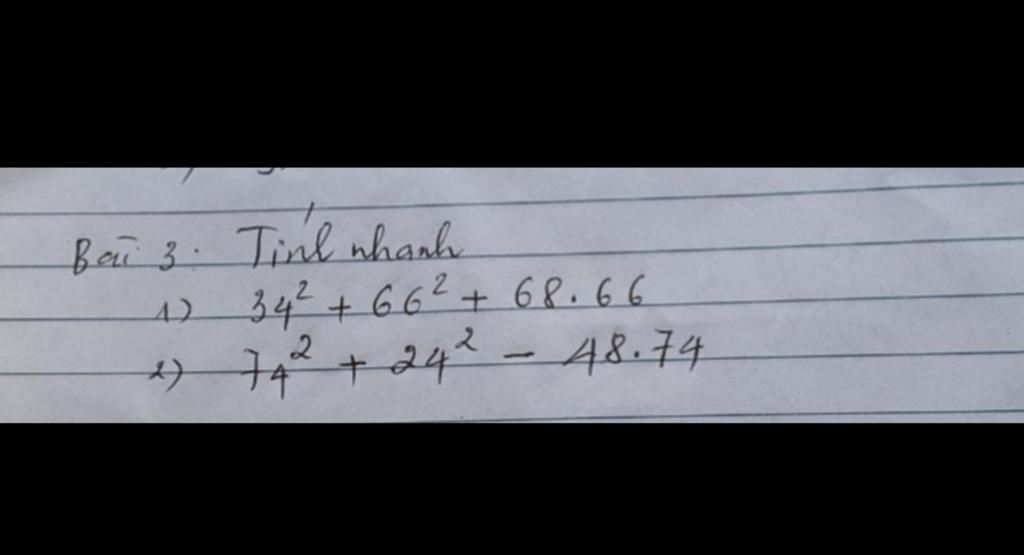 Bài 3: Tính nhanh
1) 34² + 66² + 68.66
2) 74² + 24² - 48.74